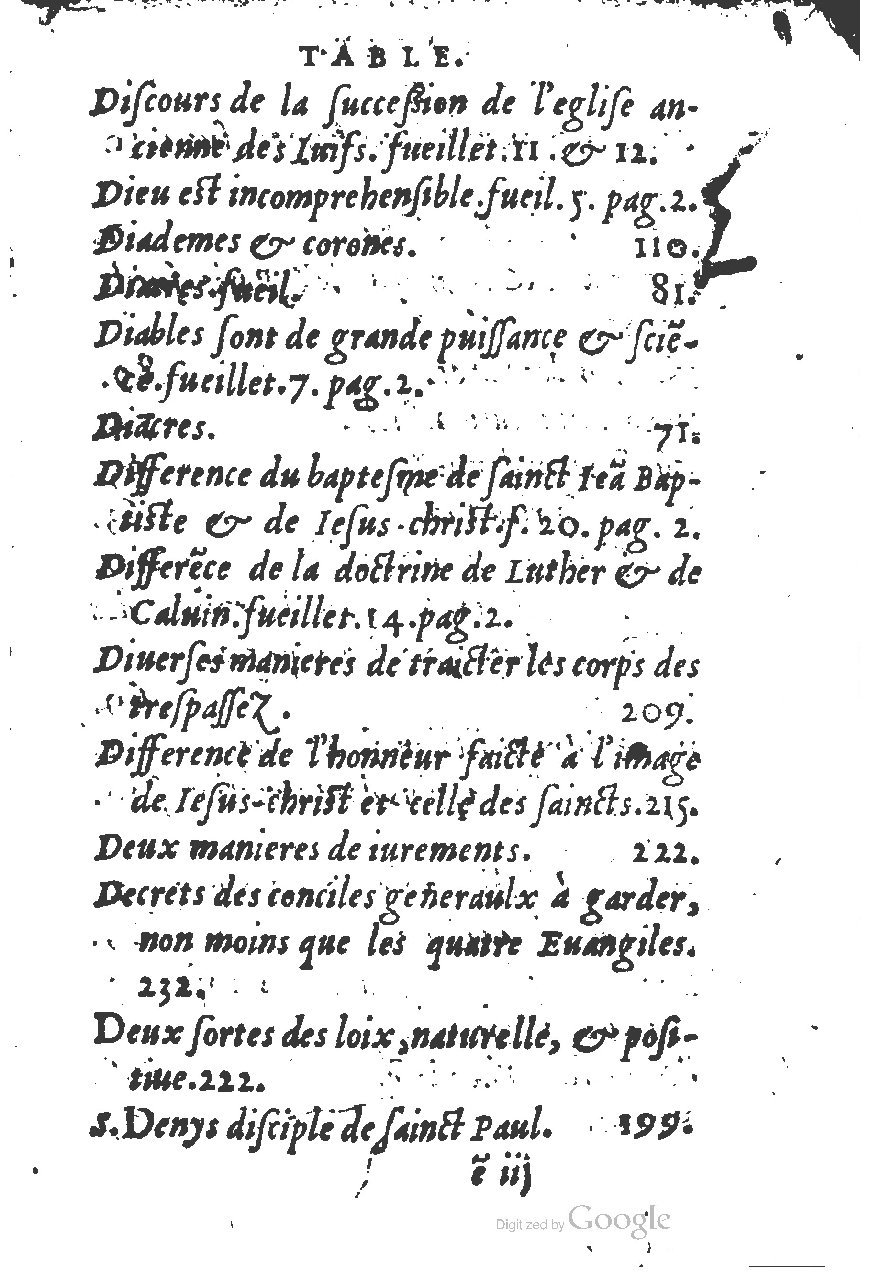 TABLE.
Diſcours de la ſucceſsion de l'egliſe an-
cienne des Iuifs. fueillet. 11. & 12.
Dieu est incomprehenſible. fueil. 5. pag. 2.
Diademes & corones. 110.
fueil. 81.
Diables ſont de grande puiſſance & ſciē-
ce. fueillet. 7. pag. 2.
Diacres. 71.
Difference du bapteſme de ſainct Ieā Bap-
tiste & de Ieſus-christ. f. 20. pag. 2.
Differēce de la doctrine de Luther & de
Caluin. fueillet. 14. pag. 2.
Diuerſes manieres de traicter les corps des
treſpaſſez. 209.
Difference de l'honneur faicte à l'image
de Ieſus-christ et celle des ſaincts. 215.
Deux manieres de iurements. 222.
Decrets des conciles generaulx à garder,
non moins que les quatre Euangiles.
232.
Deux ſortes des loix, naturelle, & poſi-
tiue. 222.
S. Denys diſciple de ſainct Paul. 199.
ē iij
Digitized by Google